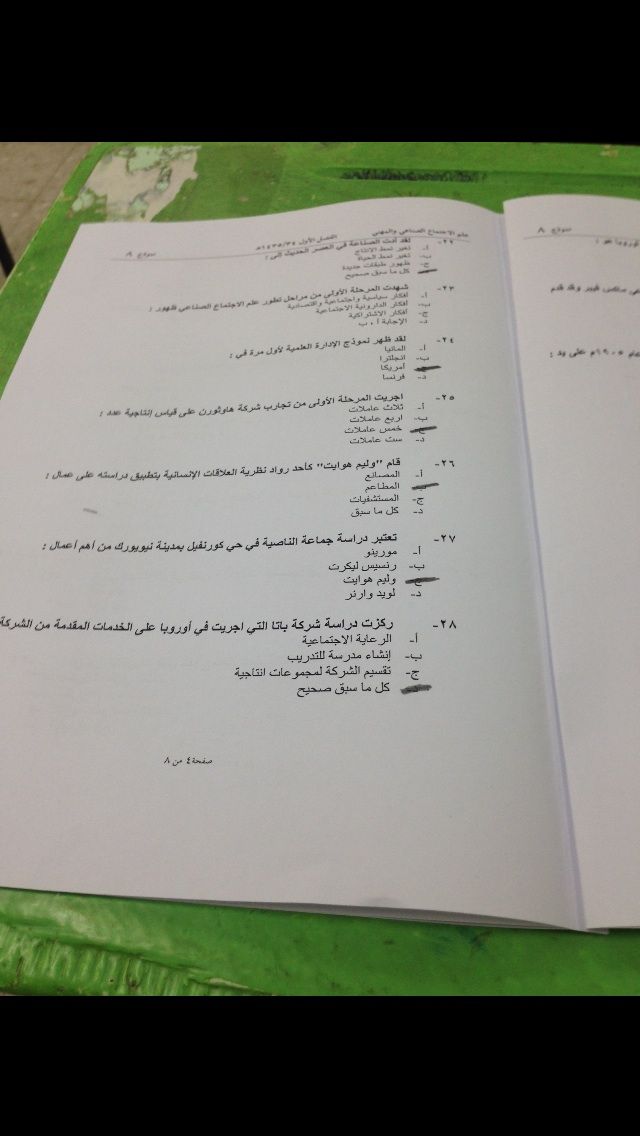 علم الاجتماع الصناعي والمهني الفصل الأول ١٤٣٥/٣٤هـ نموذج ٨
٢٢- لقد أدت الصناعة في العصر الحديث الى :
أ- تغير نمط الانتاج
ب- تغير نمط الحياة
ج- ظهور طبقات جديدة
كل ما سبق صحيح
٢٣- شهدت المرحلة الأولى من مراحل تطور علم الاجتماع الصناعي ظهور :
أ- أفكار سياسية واجتماعية واقتصادية
ب- أفكار الدارونية الاجتماعية
ج- أفكار الاشتراكية
د- الإجابة أ ، ب
٢٤- لقد ظهر نموذج الإدارة العلمية لأول مرة في :
أ- المانيا
ب- انجلترا
أمريكا
د- فرنسا
٢٥- اجريت المرحلة الأولى من تجارب شركة هاوثورن على قياس إنتاجية عدد :
أ- ثلاث عاملات
ب- اربع عاملات
خمس عاملات
د- ست عاملات
٢٦- قام "وليم هوايت" كأحد رواد نظرية العلاقات الإنسانية بتطبيق دراسته على عمال :
أ- المصانع
المطاعم
ج- المستشفيات
د- كل ما سبق
٢٧- تعتبر دراسة جماعة الناصية في حي كورنفيل بمدينة نيويورك من أهم أعمال :
أ- مورينو
ب- رنسيس ليكرت
وليم هوايت
د- لويد وارنر
٢٨- ركزت دراسة شركة باتا التي اجريت في أوروبا على الخدمات المقدمة من الشركة
أ- الرعاية الاجتماعية
ب- إنشاء مدرسة للتدريب
ج- تقسيم الشركة لمجموعات انتاجية
كل ما سبق صحيح
صفحة ٤ من ٨
نموذج ٨
وروبا هو :
ماكس فيبر وقد قدم
عام ١٩٠٥م على يد :